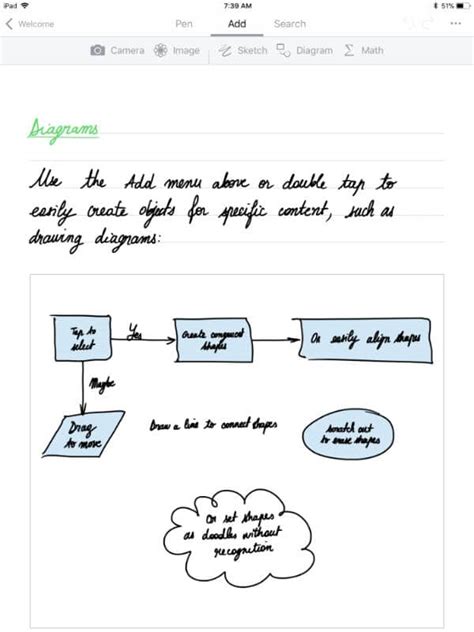 iPad 7:39 AM 51%
Welcome Pen Add Search
Camera Image Sketch Diagram Math
Diagrams
Use the Add menu above or double tap to
easily create objects for specific content, such as
drawing diagrams:
Tap to
select
Yes
Create connected
shapes
Or easily align shapes
Maybe
Drag
to move
Draw a line to connect shapes
Scratch out
to erase shapes
Or set shapes
as doodles without
recognition